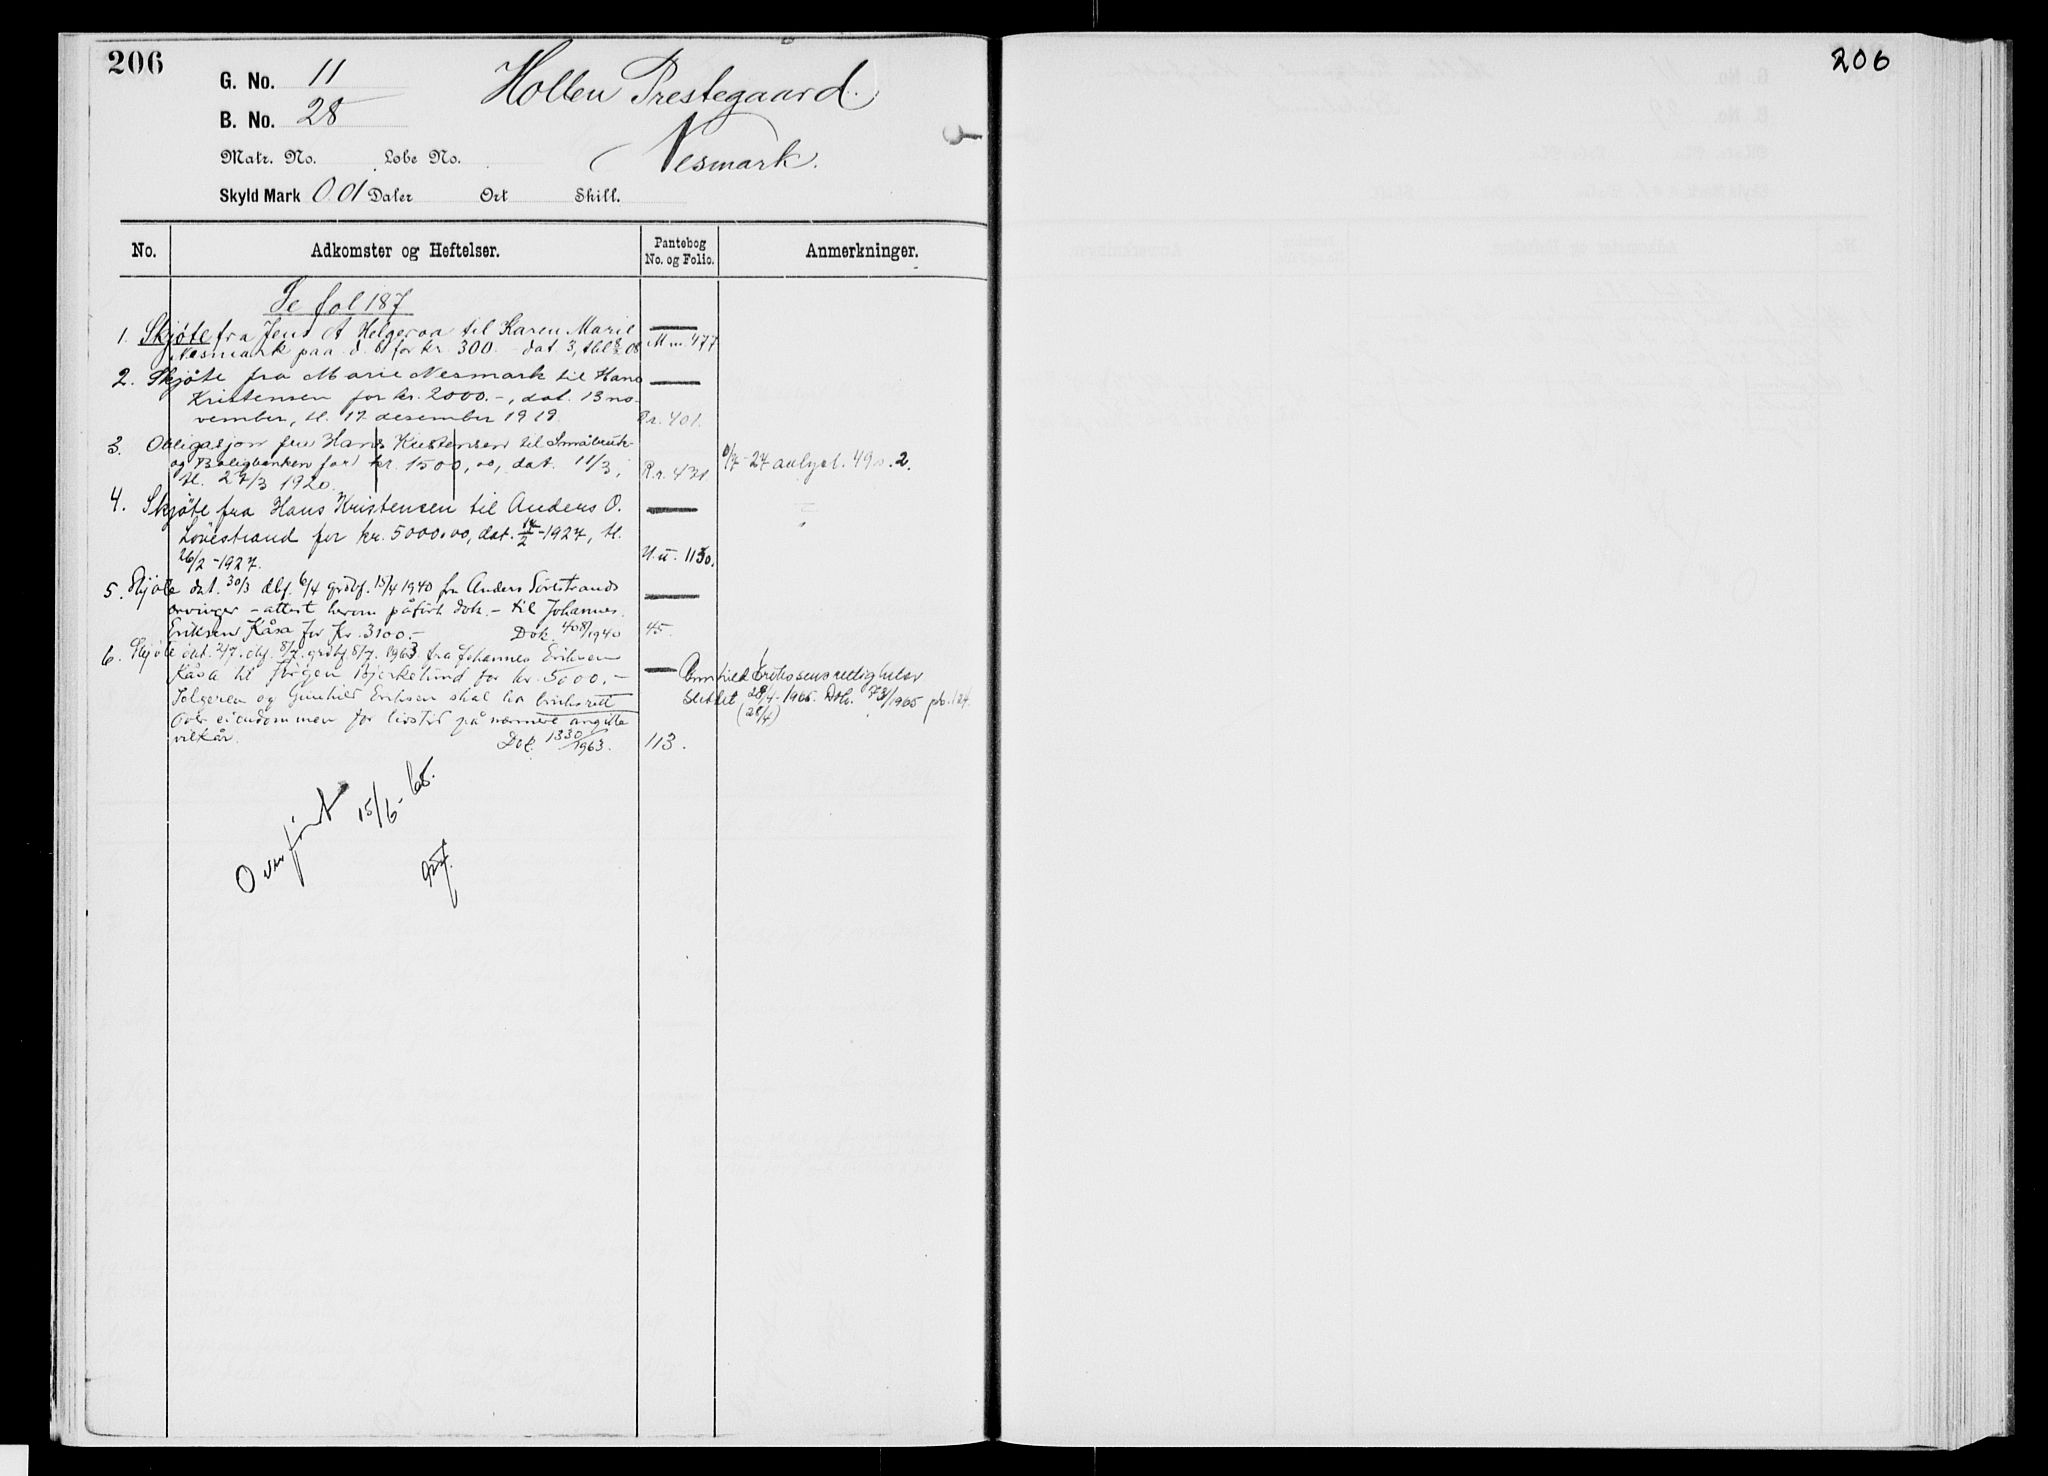 206
206
G. No. 11 Hollen Prestegaard.
B. No. 28
Matr. No. Løbe No. Nesmark.
Skyld Mark 0 01 Daler Ort Skill.
No. Adkomster og Heftelser. Pantebog No. og Folio. Anmerkninger.
Se fol 187
1. Skjøte fra Jens A Helgeroa til Karen Marie
Nesmark paa d. bl for kr. 300. - dat. 3, tbl 8/2 08 M m 477
2. Skjøte fra Marie Nesmark til Hans
Kristensen for kr. 2000.-, dat. 13 no-
vember, tl. 17 desember 1919. R r. 401.
3. Obligasjon fra Hans Kristensen til Småbruk-
og Boligbanken for kr. 1500,00, dat. 11/3, 
tl. 27/3 1920. R r. 431 /7-27 avlyst. 49 s. 2.
4. Skjøte fra Hans Kristensen til Anders O.
Lövestrand for kr. 5000,00, dat. 14/2-1927, tl.
26/2-1927. U.u. 1130.
5. Skjøte dat. 30/3 dbf. 6/4 grbf. 15/4 1940 fra Anders Lövestrands
arvinger - attest herom påført dok. - til Johannes
Eriksen Kåsa for kr. 3100.- Dok. 408/1940 45.
6. Skjøte dat. 2/7. dbf. 8/7. grbf. 8/7. 1963 fra Johannes Eriksen
Kåsa til Jörgen Bjerkelund for kr. 5000.-
Selgeren og Gunhild Eriksen skal ha bruksrett
over eiendommen for livstid på nærmere angitte
vilkår. Dok. 1330/1963. 113.
Gunhild Erikssens rettigheter
slettet 28/4-1965. Dok. 73/1965 pb. 124.
(28/4)
Overført 15/6-65.